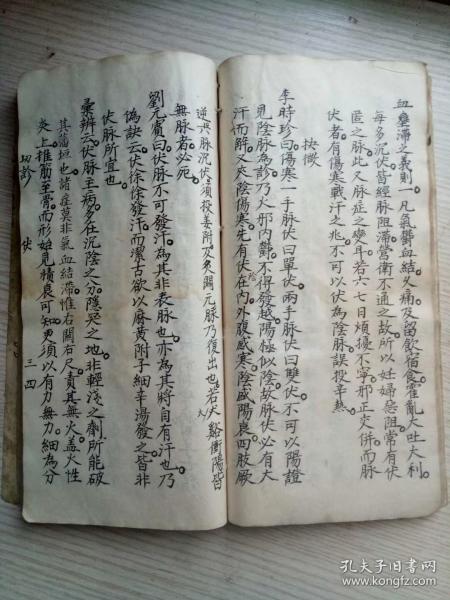 血壅滯之義則一凡氣鬱血結久痛及留飲宿食霍亂大吐大利
每多沉伏皆經脈阻滯營衛不通之故所以妊婦惡阻常有伏
匿之脈此又脈症之變耳若六七日煩擾不寧邪正交併而脈
伏者有傷寒戰汗之兆不可以伏為陰脈誤投辛熱
按徵
李時珍曰傷寒一手脈伏曰單伏兩手脈伏曰雙伏不可以陽證
見陰脈為診乃火邪內鬱不得發越陽極似陰故脈伏必有大
汗而解又夾陰傷寒先有伏在內外復感寒陰盛陽衰四肢厥
逆六脈沉伏須投姜附及灸關元脈乃復出也若太谿衝陽皆
無脈者必死
劉元賓曰伏脈不可發汗為其非表脈也亦為其將自有汗也乃
偽訣云伏徐徐發汗而潔古欲以麻黃附子細辛湯發之皆非
伏脈所宜也
彙辨云伏脈主病多在沉陰之分隱冥之地非輕淺之劑所能破
其藩垣也諸症莫非氣血結滯惟右關右尺責其無火蓋火性
炎上推筋至骨而形始見積衰可知更須以有力無力細為分
切診 伏 三四
孔夫子旧书网
www.kongfz.com